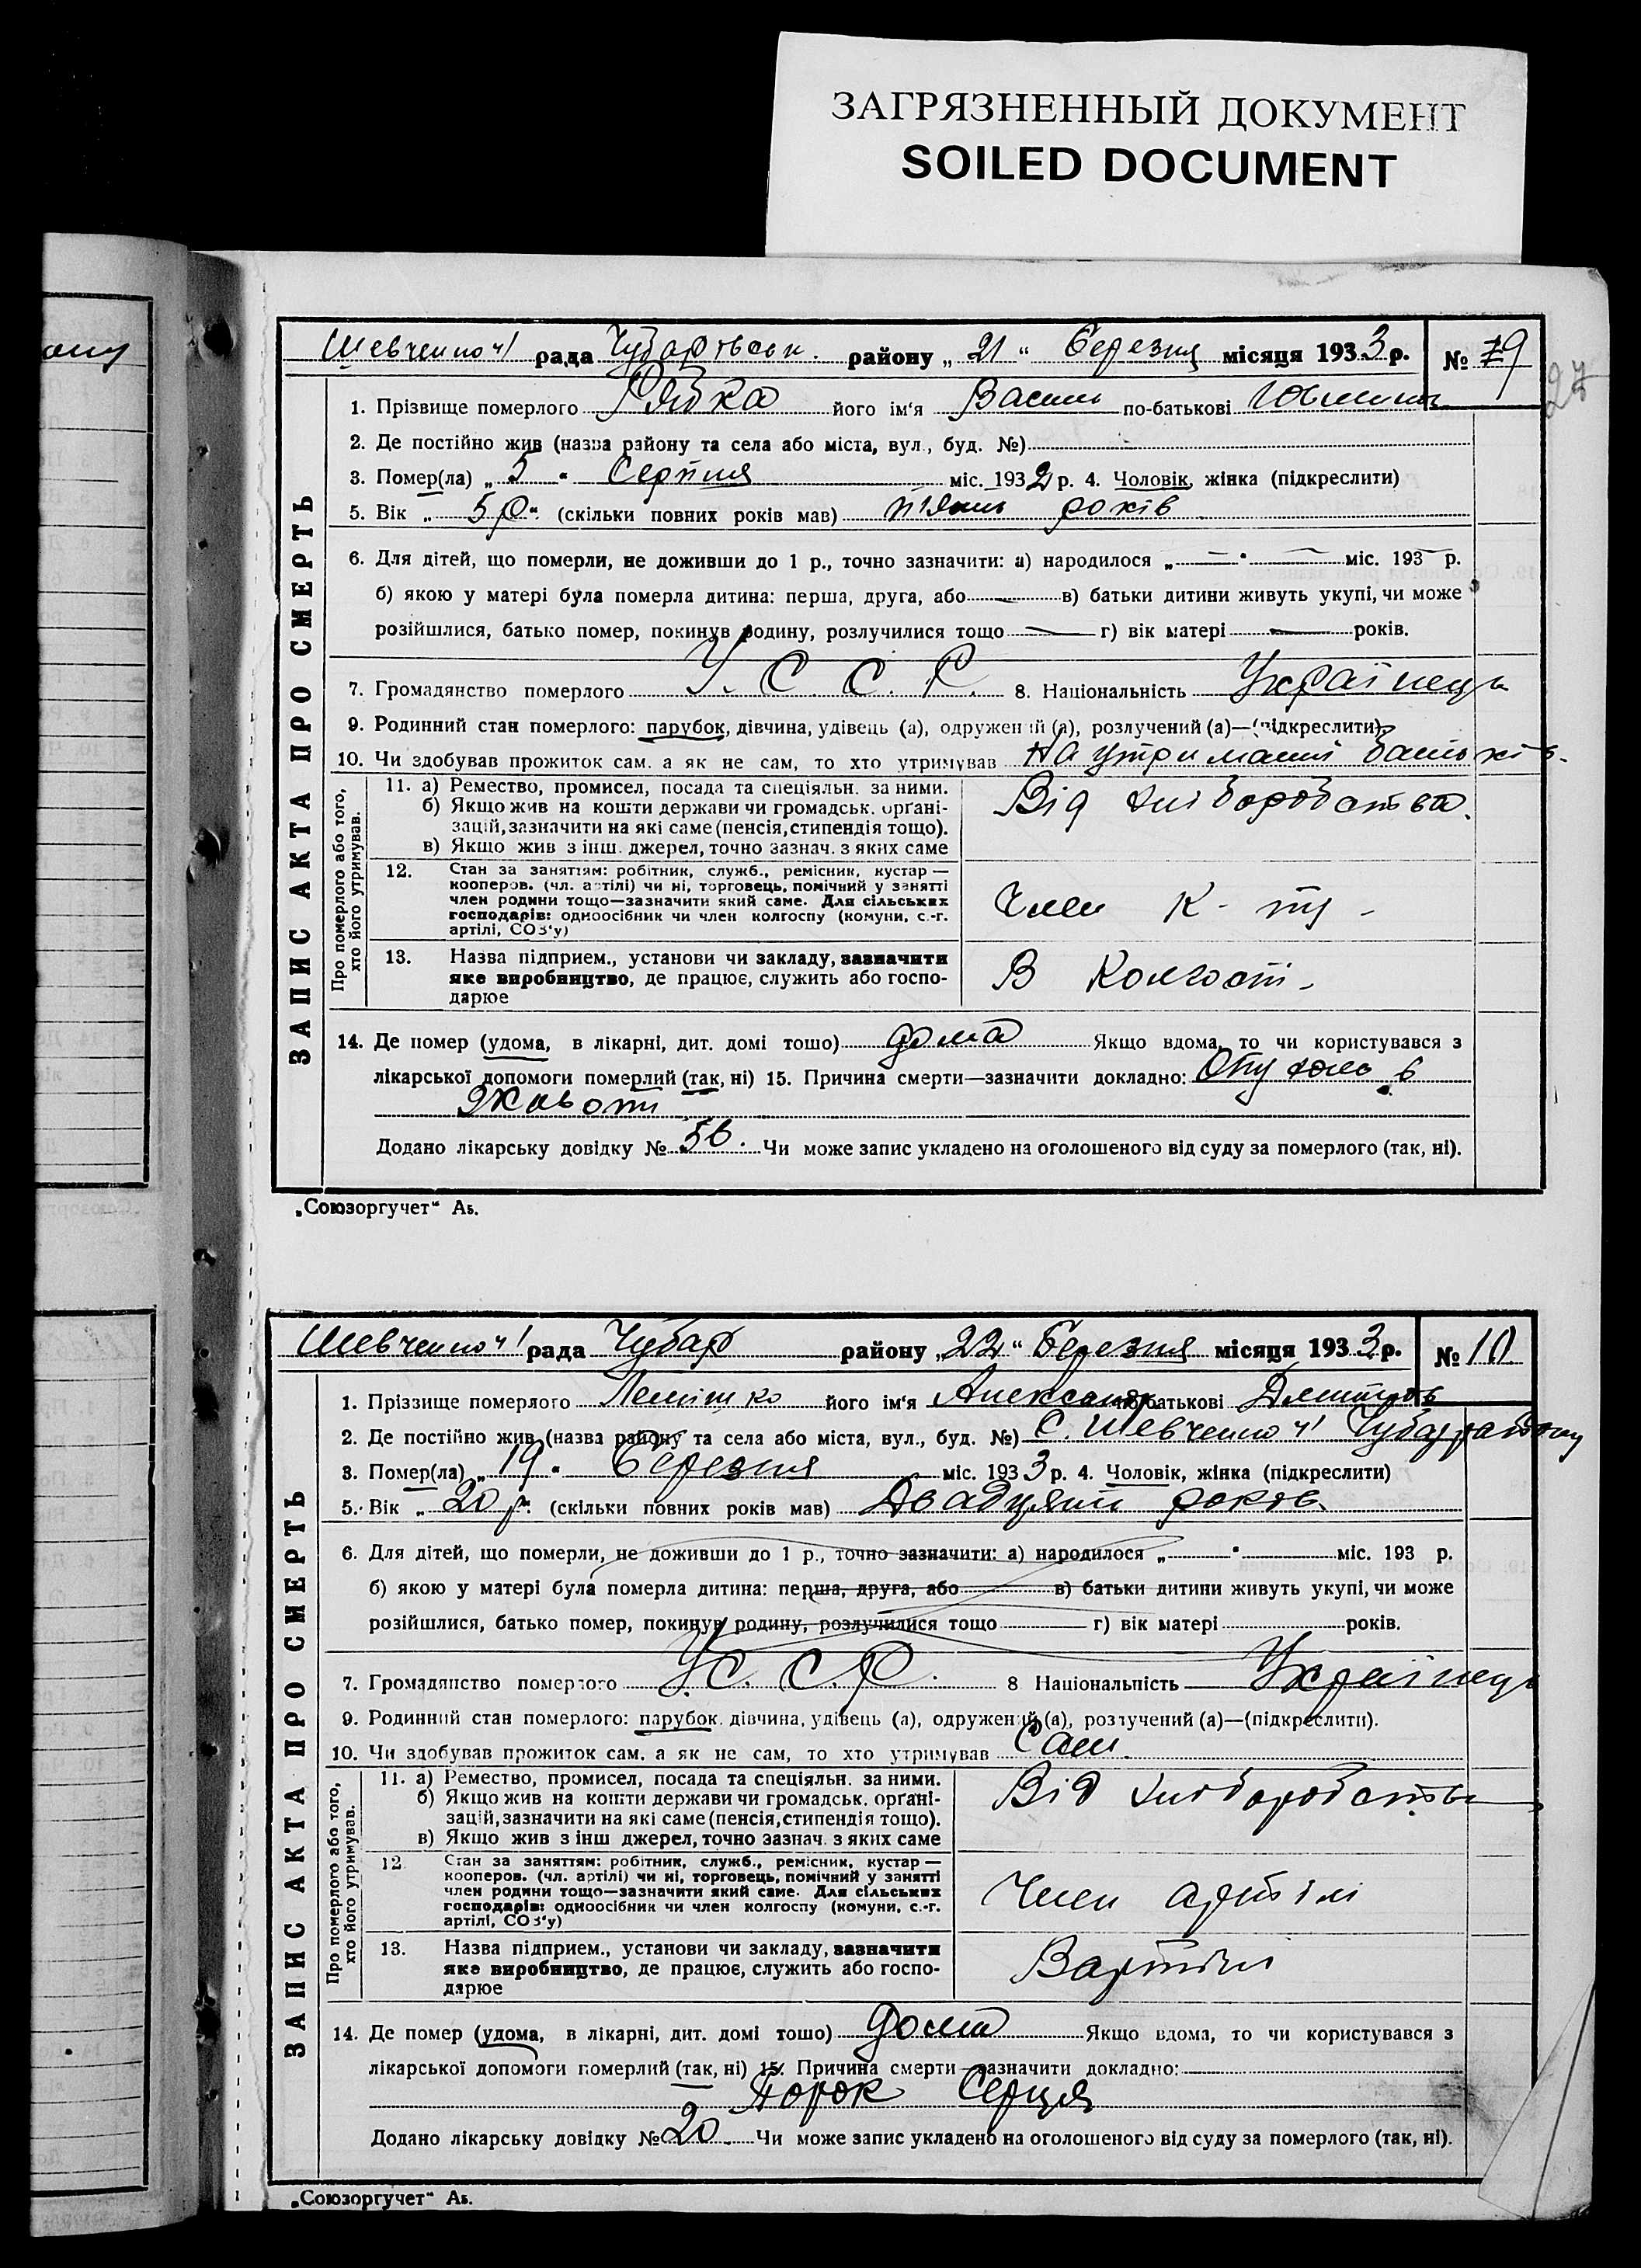 ЗАГРЯЗНЕННЫЙ ДОКУМЕНТ
SOILED DOCUMENT
Шевченко рада Чубарівськ. району „21“ Березня місяця 1933 р. № 9
27
ЗАПИС АКТА ПРО СМЕРТЬ
1. Прізвище померлого Рябка його ім'я Василь по-батькові
2. Де постійно жив (назва району та села або міста, вул., буд. №)
3. Помер(ла) „5“ Серпня міс. 1932 р. 4. Чоловік, жінка (підкреслити)
5. Вік „5 р“ (скільки повних років мав) п'ять років
6. Для дітей, що померли, не доживши до 1 р., точно зазначити: а) народилося „—“ — міс. 193— р.
б) якою у матері була померла дитина: перша, друга, або — в) батьки дитини живуть укупі, чи може
розійшлися, батько помер, покинув родину, розлучилися тощо — г) вік матері — років.
7. Громадянство померлого У. С. С. Р. 8. Національність Українець
9. Родинний стан померлого: парубок, дівчина, удівець (а), одружений (а), розлучений (а)—(підкреслити)
10. Чи здобував прожиток сам, а як не сам, то хто утримував на утриманні батьків.
Про померлого або того, хто його утримував.
11. а) Ремество, промисел, посада та спеціяльн. за ними.
б) Якщо жив на кошти держави чи громадськ. орґані-
зацій, зазначити на які саме (пенсія, стипендія тощо).
в) Якщо жив з інш. джерел, точно зазнач. з яких саме
Від хліборобства.
12. Стан за заняттям: робітник, служб., ремісник, кустар —
кооперов. (чл. артілі) чи ні, торговець, помічний у занятті
член родини тощо—зазначити який саме. Для сільських
господарів: одноосібник чи член колгоспу (комуни, с.-г.
артілі, СОЗ'у)
Член к-ту -
13. Назва підприєм., установи чи закладу, зазначити
яке виробництво, де працює, служить або госпо-
дарює
В Колгості.
14. Де помер (удома, в лікарні, дит. домі тощо) дома Якщо вдома, то чи користувався з
лікарської допомоги померлий (так, ні) 15. Причина смерти—зазначити докладно: Опухоль в
животі
Додано лікарську довідку № 56. Чи може запис укладено на оголошеного від суду за померлого (так, ні).
„Союзоргучет“ Аб.
Шевченко рада Чубар району „22“ Березня місяця 1933 р. № 10
ЗАПИС АКТА ПРО СМЕРТЬ
1. Прізвище померлого Лемішко його ім'я Александр по-батькові Дмитров
2. Де постійно жив (назва району та села або міста, вул., буд. №) С. Шевченко Чубар району
3. Помер(ла) „19“ Березня міс. 1933 р. 4. Чоловік, жінка (підкреслити)
5. Вік „20 р“ (скільки повних років мав) Двадцяти років
6. Для дітей, що померли, не доживши до 1 р., точно зазначити: а) народилося „ “ міс. 193 р.
б) якою у матері була померла дитина: перша, друга, або в) батьки дитини живуть укупі, чи може
розійшлися, батько помер, покинув родину, розлучилися тощо г) вік матері років.
7. Громадянство померлого У. С. С. Р. 8 Національність Українець
9. Родинний стан померлого: парубок, дівчина, удівець (а), одружений (а), розлучений (а)—(підкреслити).
10. Чи здобував прожиток сам, а як не сам, то хто утримував Сам
Про померлого або того, хто його утримував.
11. а) Ремество, промисел, посада та спеціяльн. за ними.
б) Якщо жив на кошти держави чи громадськ. орґані-
зацій, зазначити на які саме (пенсія, стипендія тощо).
в) Якщо жив з інш джерел, точно зазнач. з яких саме
Від хліборобства
12. Стан за заняттям: робітник, служб., ремісник, кустар —
кооперов. (чл. артілі) чи ні, торговець, помічний у занятті
член родини тощо—зазначити який саме. Для сільських
господарів: одноосібник чи член колгоспу (комуни, с.-г.
артілі, СОЗ'у)
Член артілі
13. Назва підприєм., установи чи закладу, зазначити
яке виробництво, де працює, служить або госпо-
дарює
Вартілі
14. Де помер (удома, в лікарні, дит. домі тощо) дома Якщо вдома, то чи користувався з
лікарської допомоги померлий (так, ні) 15. Причина смерти—зазначити докладно:
Порок Серця
Додано лікарську довідку № 20 Чи може запис укладено на оголошеного від суду за померлого (так, ні).
„Союзоргучет“ Аб.